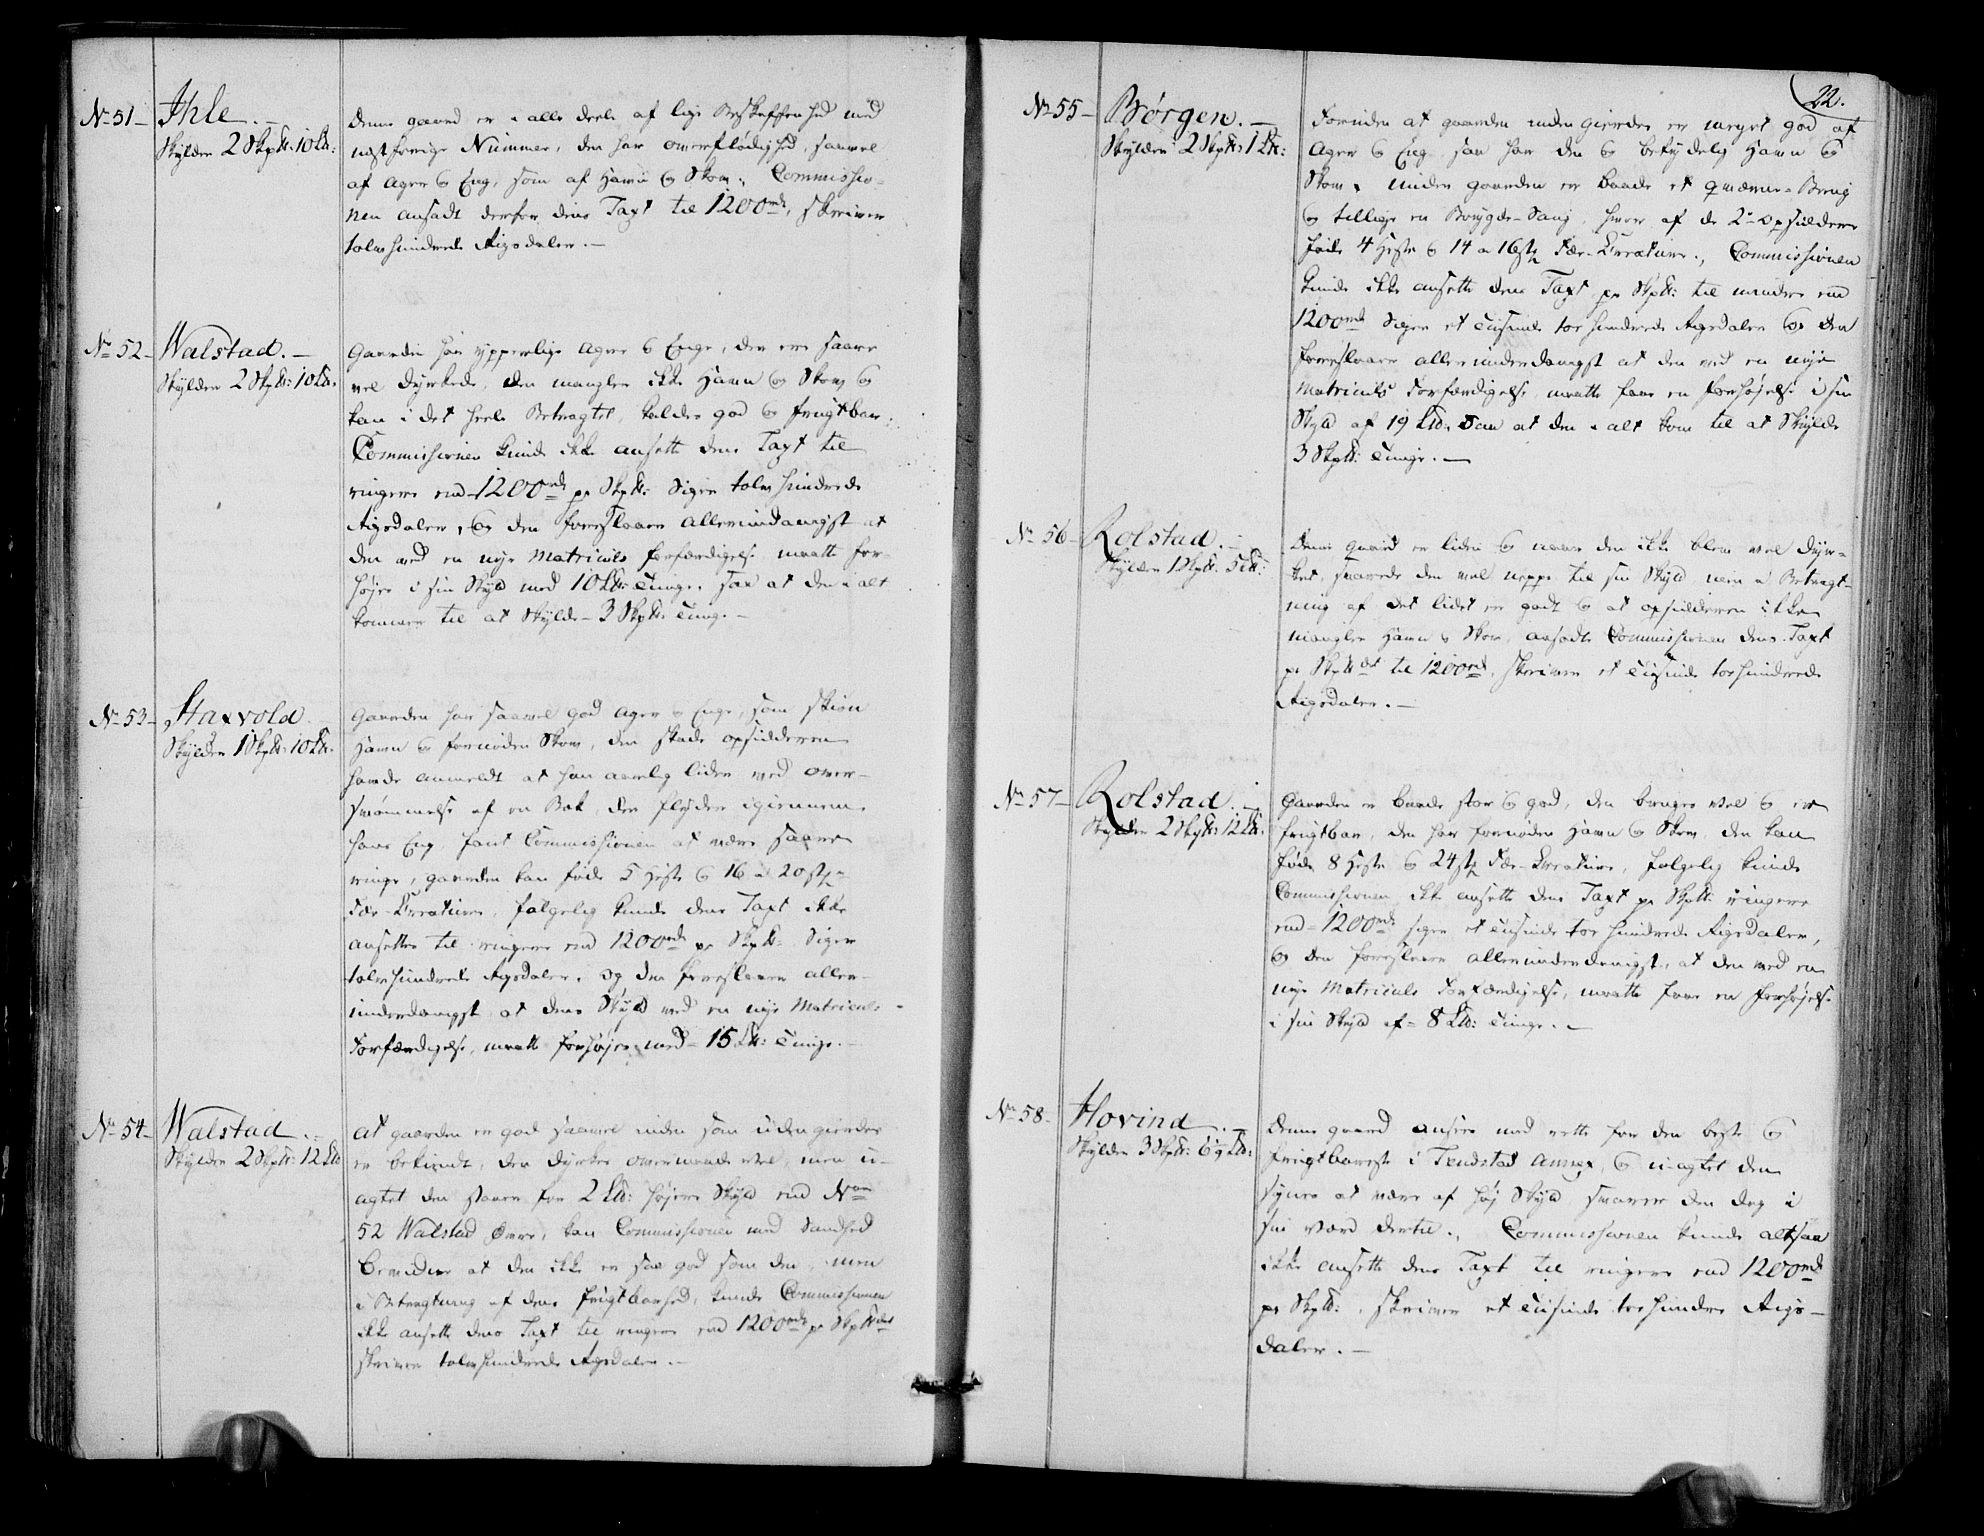 No 51 – Ihle. –
Skylder 2 Skpd: 10 Lb:
Denne gaard er i alle deele af lige Beskaffenhed med
næst forrige Nummer, den har overflødighed, saavel
af Ager og Eng, som af Havn og Skov., Commissio-
nen ansadt derfor dens Taxt til 1200 rd, skriver
tolvhundrede Rigsdaler. –
No 52 – Walstad. –
Skylder 2 Skpd: 10 Lb.
Gaarden har ypperlige Agere og Enge, der ere saare
vel dyrkede, den mangler ikke Havn og Skov og
kan i det heele Betragtet, kaldes god og frugtbar.,
Commissionen kunde ikke ansette dens Taxt til
ringere end 1200 rd pr Skpd: Siger tolvhundrede
Rigsdaler, og den foreslaaer allerunderdanigst at
den ved en nye Matriculs forfærdigelse maatte for-
højes i sin Skyld med 10 Lb: Tunge, saa at den i alt
kommer til at Skylde – 3 Skpd: Tunge. –
No 53 – Staxvold.
Skylder 1 Skpd: 10 Lb.
Gaarden har saavel god Ager og Enge, som skiøn
Havn og fornøden Skov, den skade opsidderen
havde anmeldt at han aarlig lider ved over-
svømmelse af en Bæk, der flyder igiennem
hans Eng, fant Commissionen at være saare
ringe, gaarden kan føde 5 Heste og 16 a 20 stk
Fæe-Creature, følgelig kunde dens Taxt ikke
ansettes til ringere end 1200 rd pr Skpd: Siger
tolvhundrede Rigsdaler, og den foreslaaer aller-
underdanigst at dens Skyld ved en nye Matriculs-
Forfærdigelse, maatte forhøjes med – 15 Lb: Tunge. –
No 54 – Walstad. –
Skylder 2 Skpd: 12 Lb
At gaarden er god saavel inden som uden gierdes
er bekiendt, den dyrkes overmaade vel, men u-
agtet den staaer for 2 Lb: højere Skyld end No
52 Walstad Øvre, kan Commissionen med Sandhed
bevidne at den ikke er saa god som den, men
i Betragtning af dens frugtbarhed, kunde Commissionen
ikke ansette dens Taxt til ringere end 1200 rd pr Skpdet
skriver tolvhundrede Rigsdaler. –
22.
No 55 – Børgen. –
Skylder 2 Skpd: 1 Lb:
Foruden at gaarden inden gierdes er meget god af
Ager og Eng saa har den og betydelig Havn og
Skov, under gaarden er baade et Qværne-Brug
og tillige en Bøygde-Saug, hver af de 2de opsiddere
føde 4 Heste og 14 a 16 stk Fæe-Creature., Commissionen
kunde ikke ansette dens Taxt pr Skpd: til mindre end
1200 rd Siger et Tusinde toe hundrede Rigsdaler og den
foreslaaer allerunderdanigst at den ved en nye
Matriculs Forfærdigelse, maatte faae en forhøjelse i sin
Skyld af 19 Lb: Saa at den i alt kom til at Skylde
3 Skpd: Tunge. –
No 56 – Rolstad. –
Skylder 1 Skpd: 5 Lb:
Denne gaard er liden og naar den ikke blev vel dyr-
ket, svarede den vel neppe til sin Skyld, men i Betragt-
ning af det lidet er godt og at opsidderen ikke
mangler Havn og Skov, ansadte Commissionen dens Taxt
pr Skpdet til 1200 rd, skriver et Tusinde toehundrede
Rigsdaler. –
No 57 – Rolstad. –
Skylder 2 Skpd: 12 Lb:
Gaarden er baade stor og god, den bruges vel og er
frugtbar, den har fornøden Havn og Skov, den kan
føde 8 Heste og 24 stk Fæe-Creature, følgelig kunde
Commissionen ikke ansette dens Taxt pr Skpd: ringere
end – 1200 rd siger et Tusinde toe hundrede Rigsdaler,
og den foreslaaer allerunderdanigst, at den ved en
nye Matriculs Forfærdigelse, maatte faae en forhøjelse
i sin Skyld af – 8 Lb: Tunge. –
No 58 – Hovind. –
Skylder 3 Skpd: 6 Lb:
Denne gaard ansees med rette for den beste og
frugtbareste i Annex, og uagtet den
synes at være af høj Skyld, svarer den dog i
sin værd dertil., Commissionen kunde altsaa
ikke ansette dens Taxt til ringere end 1200 rd
pr Skpd:, skriver et Tusinde toe hundrede Rigs-
daler. –